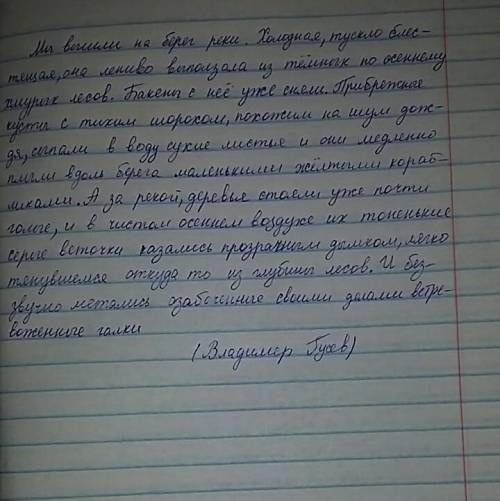 Мы вышли на берег реки. Холодная, тускло блес-
тящая, она лениво выползала из тёмных по осеннему
хмурых лесов. Бакены с неё уже сняли. Прибрежные
кусты с тихим шорохом, похожим на шум дож-
дя, сыпали в воду сухие листья и они медленно
плыли вдоль берега маленькими жёлтыми кораб-
ликами. А за рекой, деревья стояли уже почти
голые, и в чистом осеннем воздухе их тоненькие
серые веточки казались прозрачным дымком, легко
тянувшемся откуда то из глубины лесов. И без-
звучно метались озабоченные своими делами встре-
воженные галки
(Владимир Гусев)